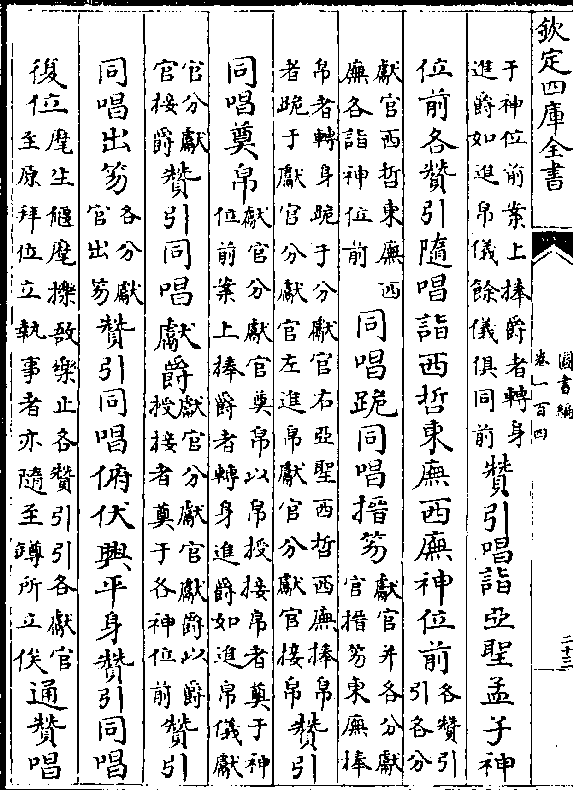 欽定四庫全書
圖書編
卷一百四
二十三
于神位前案上捧爵者轉身
進爵如進帛儀餘儀俱同前
贊引唱詣亞聖孟子神
位前各贊引隨唱詣西哲東廡西廡神位前
各贊引
引各分
獻官西哲東廡西
廡各詣神位前
同唱跪同唱搢笏
獻官并各分獻
官搢笏東廡捧
帛者轉身跪于分獻官右亞聖西哲西廡捧帛
者跪于獻官分獻官左進帛獻官分獻官接帛
贊引
同唱奠帛
獻官分獻官奠帛以帛授接帛者奠于神
位前案上捧爵者轉身進爵如進帛儀獻
官分獻
官接爵
贊引同唱獻爵
獻官分獻官獻爵以爵
授接者奠于各神位前
贊引
同唱出笏
各分獻
官出笏
贊引同唱俯伏興平身贊引同唱
復位
麾生偃麾擽敔樂止各贊引引各獻官
至原拜位立執事者亦隨至罇所立俟
通贊唱